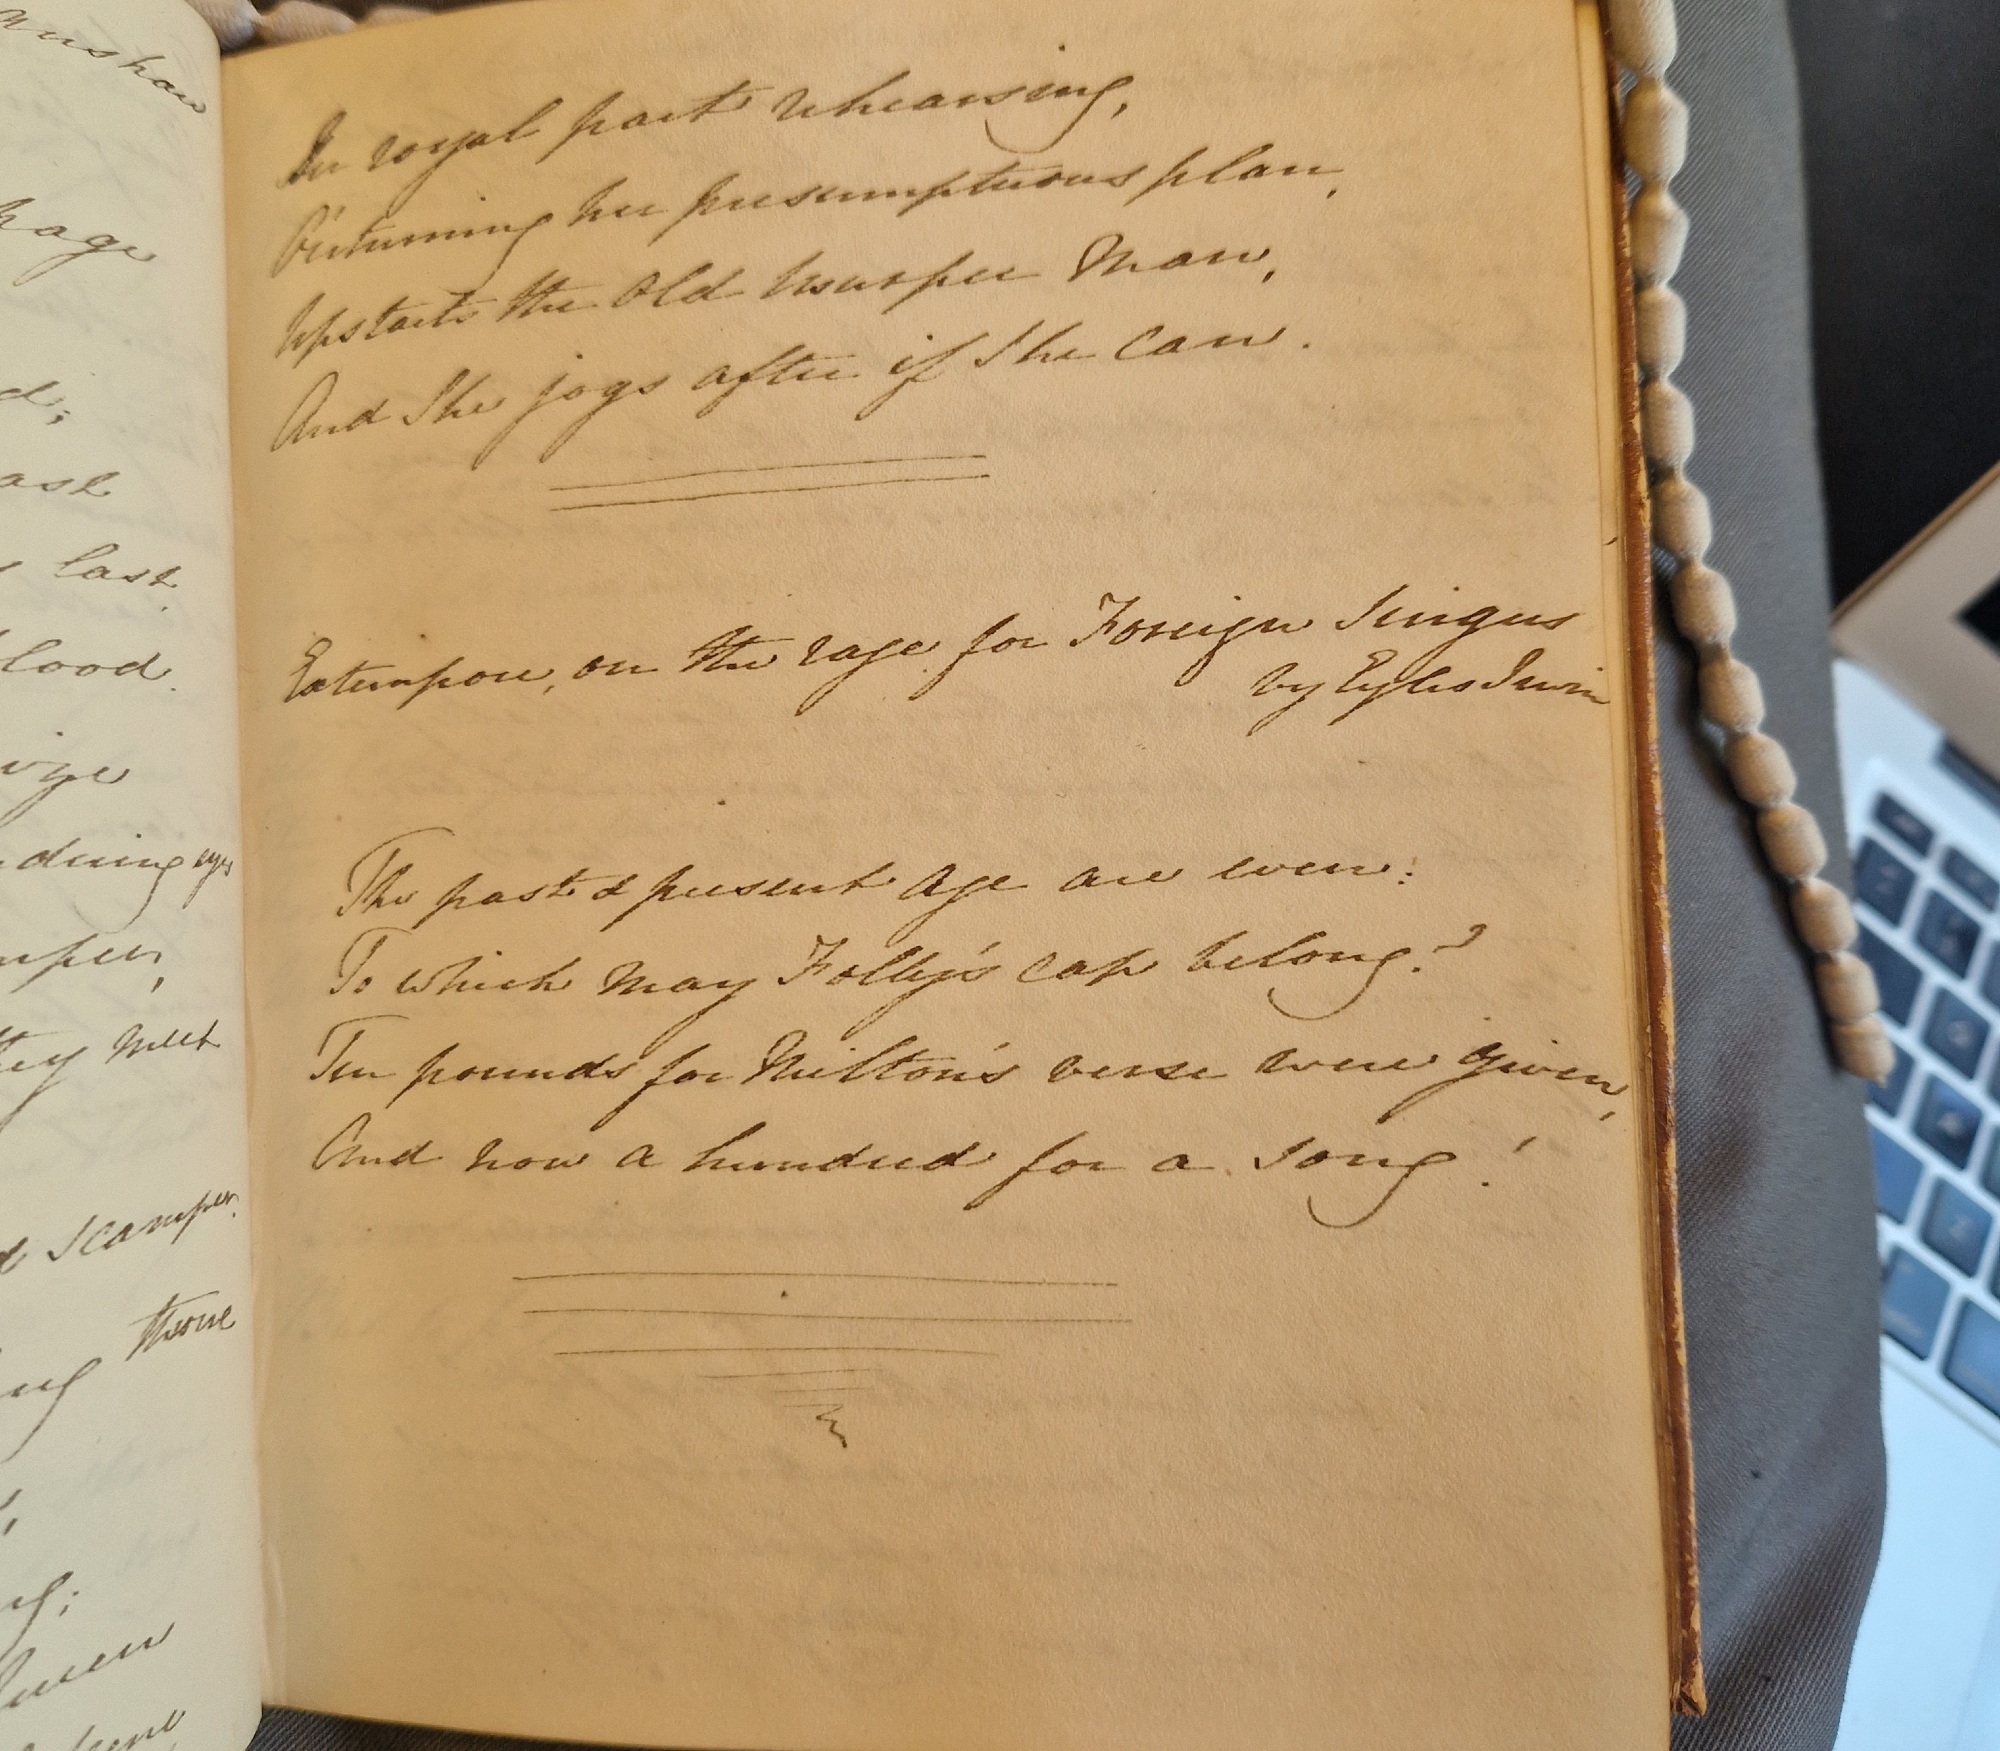 unshaw
hage
d;
ast
s last.
lood.
dering eyes
mper,
they meet
d scamper.
throne
ing
Queen
In royal part rehearsing,
O'erturning her presumptuous plan,
Upstarts the old Usurper Man,
And She jogs after if She can.
Extempore, on the rage for Foreign Singers
by Eyles Irwin
The past & present Age are even:
To which may Folly's cap belong?
Ten pounds for Milton's verse were given,
And now a hundred for a song!